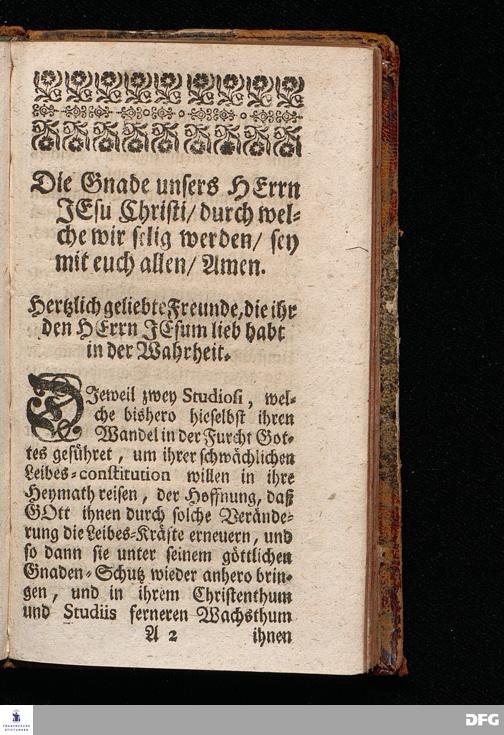 Die Gnade unsers HErrn
JEsu Christi/ durch wel-
che wir selig werden/ sey
mit euch allen/ Amen.
Hertzlich geliebte Freunde, die ihr
den HErrn JEsum lieb habt
in der Wahrheit.
DJeweil zwey Studiosi, wel-
che bißhero hieselbst ihren
Wandel in der Furcht Got-
tes geführet, um ihrer schwächlichen
Leibes-constitution willen in ihre
Heymath reisen, der Hoffnung, daß
GOtt ihnen durch solche Verände-
rung die Leibes-Kräfte erneuern, und
so dann sie unter seinem göttlichen
Gnaden-Schutz wieder anhero brin-
gen, und in ihrem Christenthum
und Studiis ferneren Wachsthum
A 2 ihnen
FRANCKESCHE
STIFTUNGEN
DFG